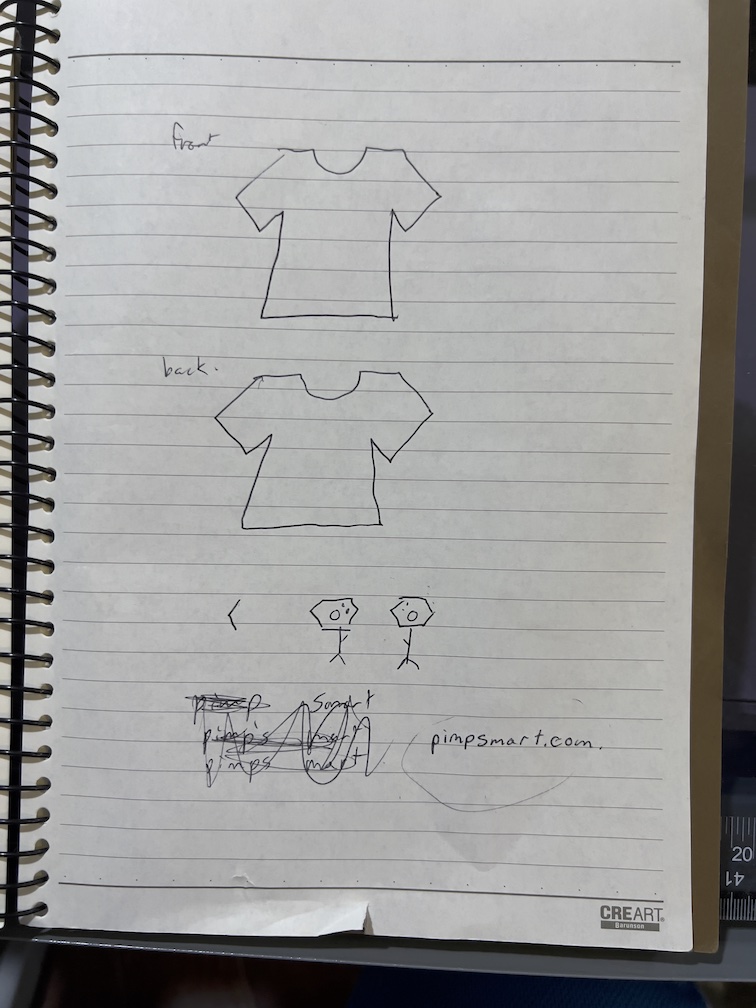 front
back.
pimp Smart
pimp's mart
pimps mart
pimpsmart.com.
CREART
Baronson
20
41